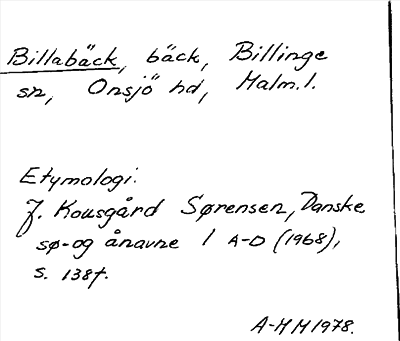 Billabäck, bäck, Billinge
sn, Onsjö hd, Malm.l.
Etymologi:
J. Kousgård Sørensen, Danske
sø- og ånavne 1 A-D (1968),
s. 138f.
A-H M 1978.